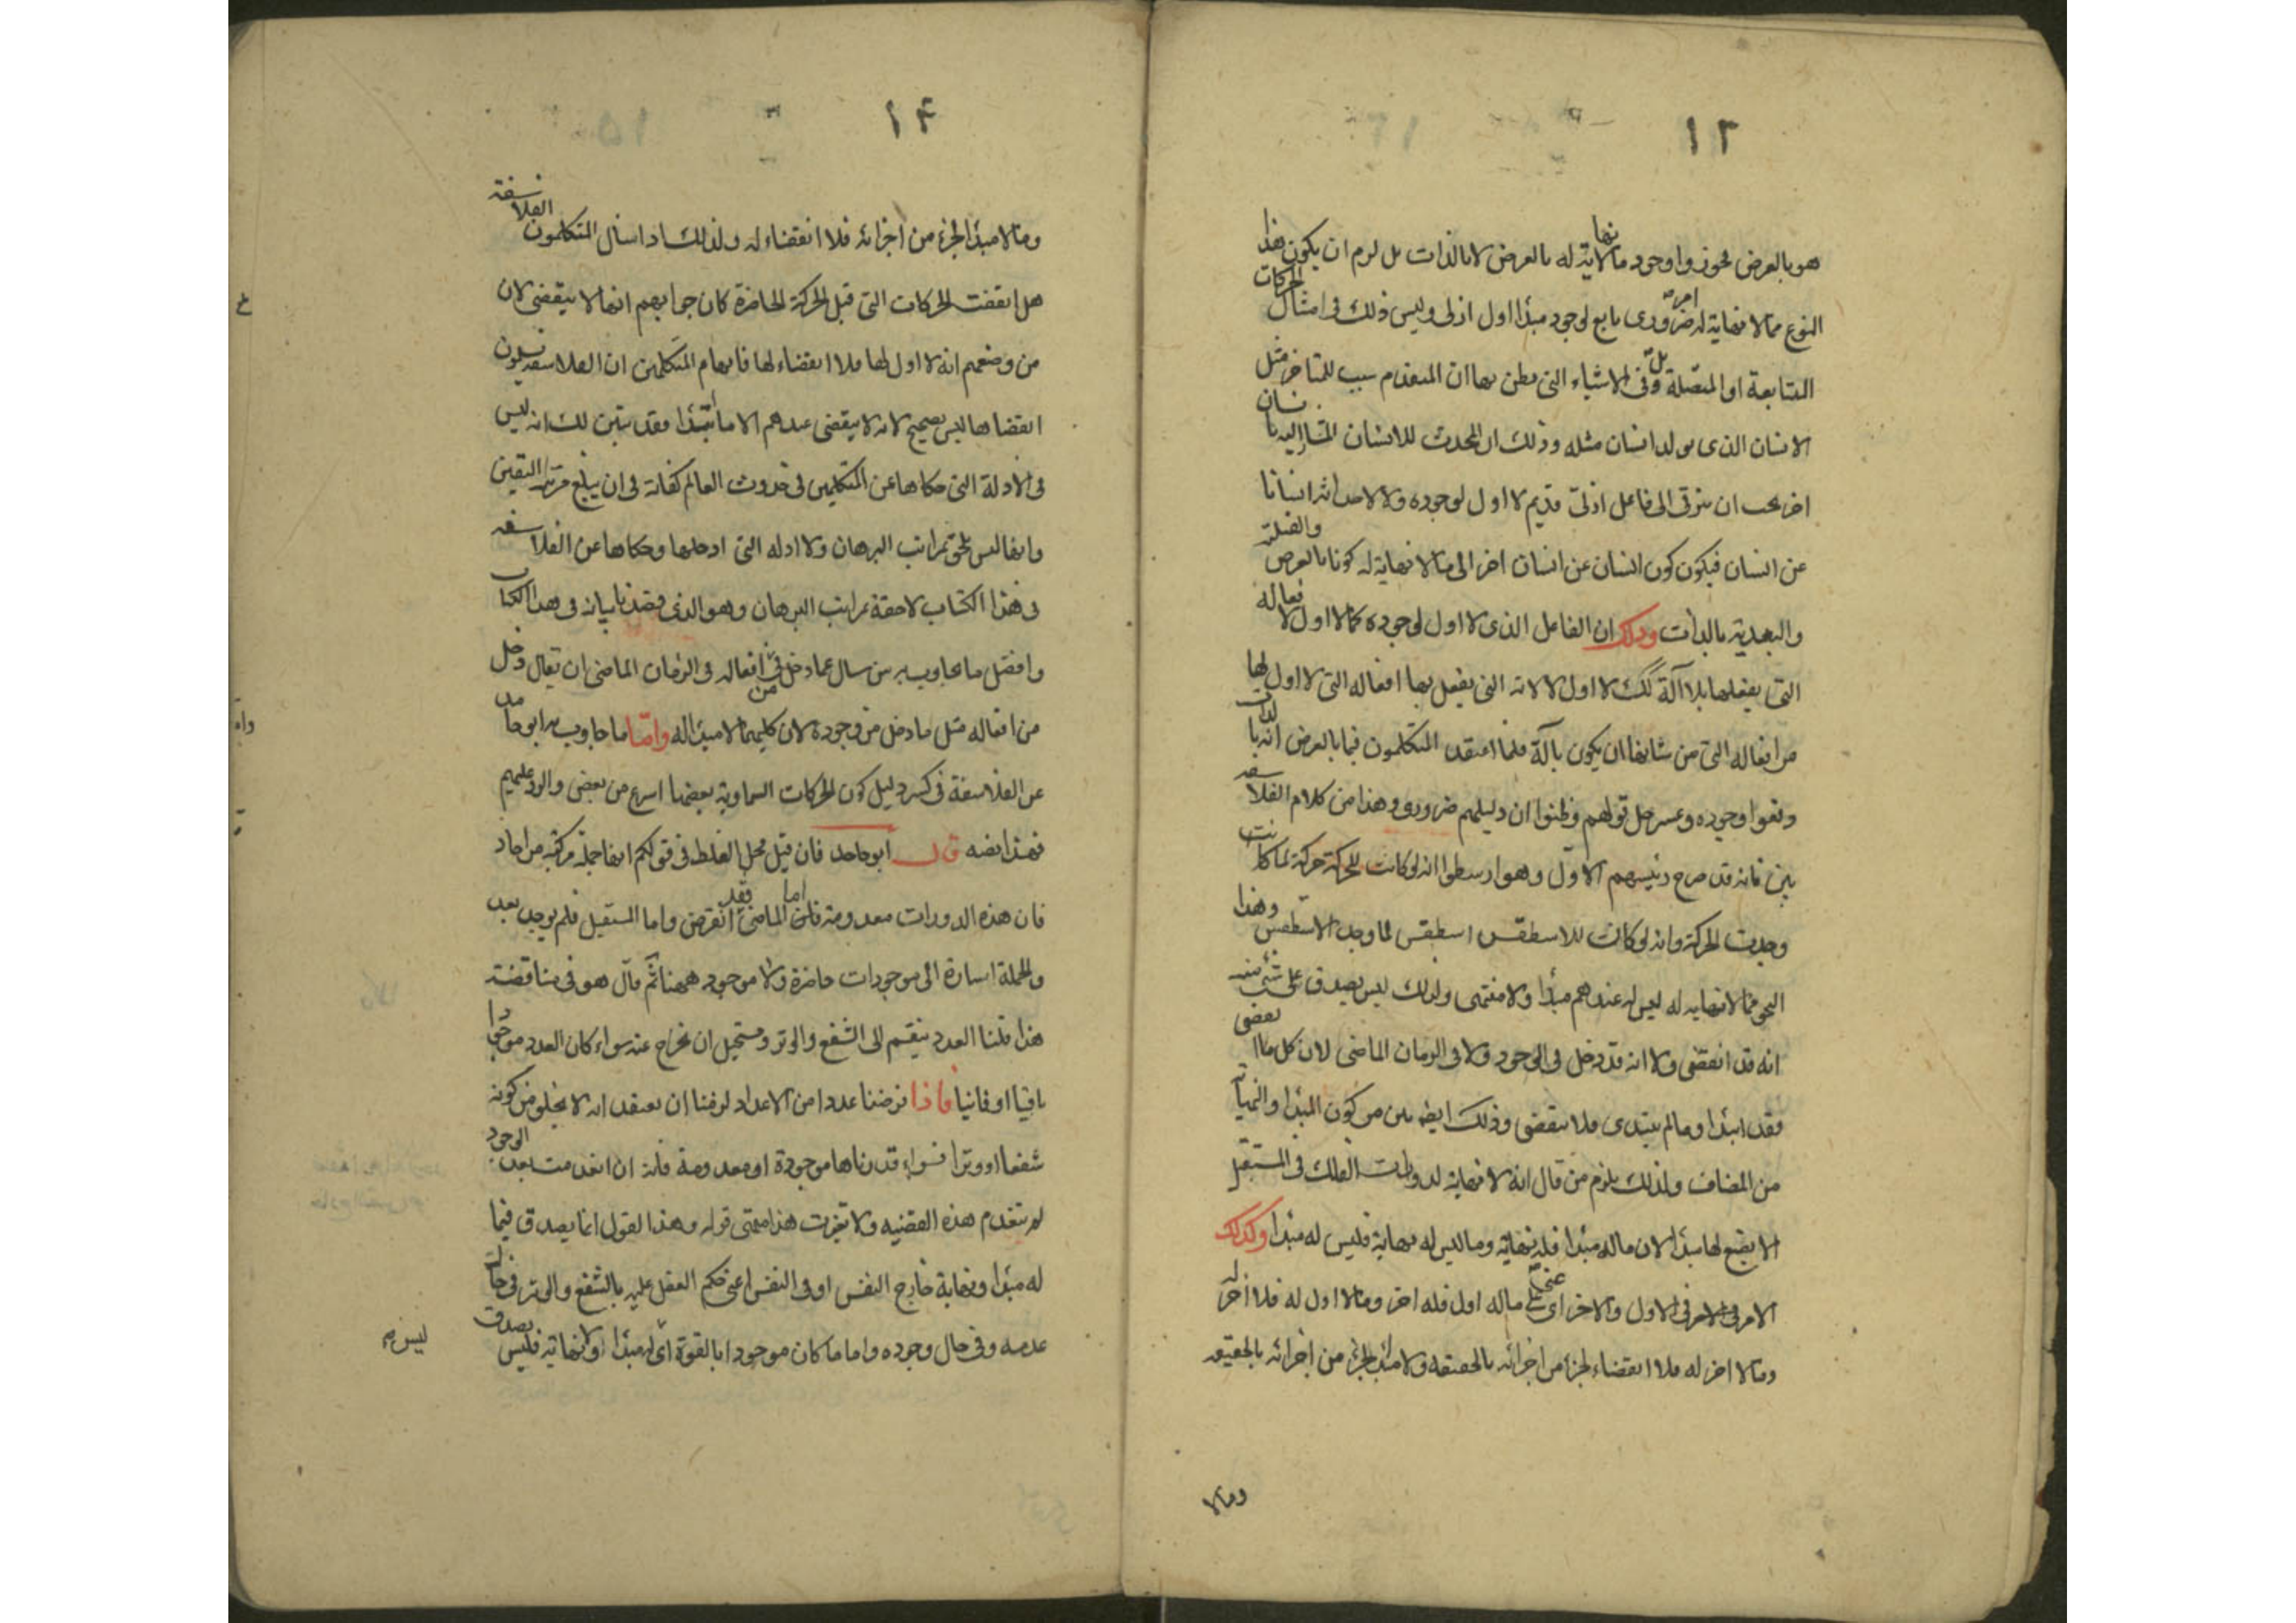 ١٣
هو بالعرض فجوزوا وجود ما لا نهاية له بالعرض لا بالذات بل لزم ان يكون هذا
النوع مما لا نهاية له امر ضرورى تابع لوجود مبدا اول ازلى وليس ذلك فى امثال الحركات
المتتابعة او المتصلة بل وفى الاشياء التى يظن بها ان المتقدم سبب للمتاخر مثل
الانسان الذى يولد انسان مثله وذلك ان المحدث للانسان المشار اليه بانسان
اخر يجب ان يترقى الى فاعل ازلى قديم لا اول لوجوده ولا لاحداثه انسانا
عن انسان فيكون كون انسان عن انسان اخر الى ما لا نهاية له كونا بالعرض والقبلية
والبعدية بالذات وذلك ان الفاعل الذى لا اول لوجوده كما لا اول لافعاله
التى يفعلها بلا آلة كك لا اول للالة التى يفعل بها افعاله التى لا اول لها
من افعاله التى من شانها ان يكون بآلة فلما اعتقد المتكلمون فيما بالعرض انه بالذات
دفعوا وجوده وعسر حل قولهم وظنوا ان دليلهم ضرورى وهذا من كلام الفلاسفة
بين فانه قد صرح رئيسهم الاول وهو ارسطوا انه لو كانت للحركة حركة لما كانت
وجدت الحركة وانه لو كانت للاسطقس اسطقس لما وجد الاسطقس وهذا
النحو مما لا نهاية له ليس له عندهم مبدا ولا منتهى ولذلك ليس يصدق على شئ منه
انه قد انقضى ولا انه قد دخل فى الوجود ولا فى الزمان الماضى لان كل ما انقضى
فقد ابتدا وما لم يبتدى فلا ينقضى وذلك ايضه بين من كون المبدا والنهاية
من المضاف ولذلك يلزم من قال انه لا نهاية لدورات الفلك فى المستقبل
الا يضع لها مبدا لان ما له مبدا فله نهاية وما ليس له نهاية فليس له مبدا وكذلك
الامر فى الاول والاخر اعنى ما له اول فله اخر وما لا اول له فلا اخر له
وما لا اخر له فلا انقضاء لجزء من اجزائه بالحقيقة ولا مبدا لجزء من اجزائه بالحقيقة
وما لا
١٤
وما لا مبدا لجزء من اجزائه فلا انقضاء له ولذلك اذا سال المتكلمون الفلاسفة
هل انقضت الحركات التى قبل الحركة الحاضرة كان جوابهم انها لا ينقضى لان
من وضعهم انه لا اول لها فلا انقضاء لها فايهام المتكلمين ان الفلاسفة يسلمون
انقضاها ليس بصحيح لانه لا ينقضى عندهم الا ما ابتدا فقد تبين لك انه ليس
فى الادلة التى حكاها عن المتكلمين فى حدوث العالم كفاية فى ان يبلغ مرتبة اليقين
وانها ليس يلحق بمراتب البرهان ولا ادله التى ادخلها وحكاها عن الفلاسفه
فى هذا الكتاب لاحقة بمراتب البرهان وهو الذى قصدنا بيانه فى هذا الكتاب
وافضل ما يجاوب به من سال عما دخل من افعاله فى الزمان الماضى ان يقال دخل
من افعاله مثل ما دخل من وجوده لان كليهما لا مبدا له واما ما جاوب به ابو حامد
عن الفلاسفة فى كسر دليل كون الحركات السماوية بعضها اسرع من بعض والرد عليهم
فهذا نصه قال ابو حامد فان قيل محل الغلط فى قولكم انها جملة مركبة من احاد
فان هذه الدورات معدومة فان اما الماضى فقد انقرض واما المستقبل فلم يوجد بعد
والجملة اشارة الى موجودات حاضرة ولا موجود ههنا ثم قال هو فى مناقضة
هذا قلنا العدد ينقسم الى الشفع والوتر ومستحيل ان يخرج عنه سواء كان العدد موجودا
باقيا او فانيا فاذا فرضنا عددا من الاعداد لزمنا ان نعتقد انه لا يخلو من كونه
شفعا او وترا فسواء قدرناها موجودة او معدومة فانه ان انعدمت بعد الوجود
لم تنعدم هذه القضيه ولا تغيرت هذا منتهى قوله وهذا القول انما يصدق فيما
له مبدا ونهاية خارج النفس او فى النفس اعنى حكم العقل عليه بالشفع والوتر فى حالة
عدمه وفى حال وجوده واما ما كان موجودا بالقوة اى له مبدا او لا نهاية فليس يصدق
ليس